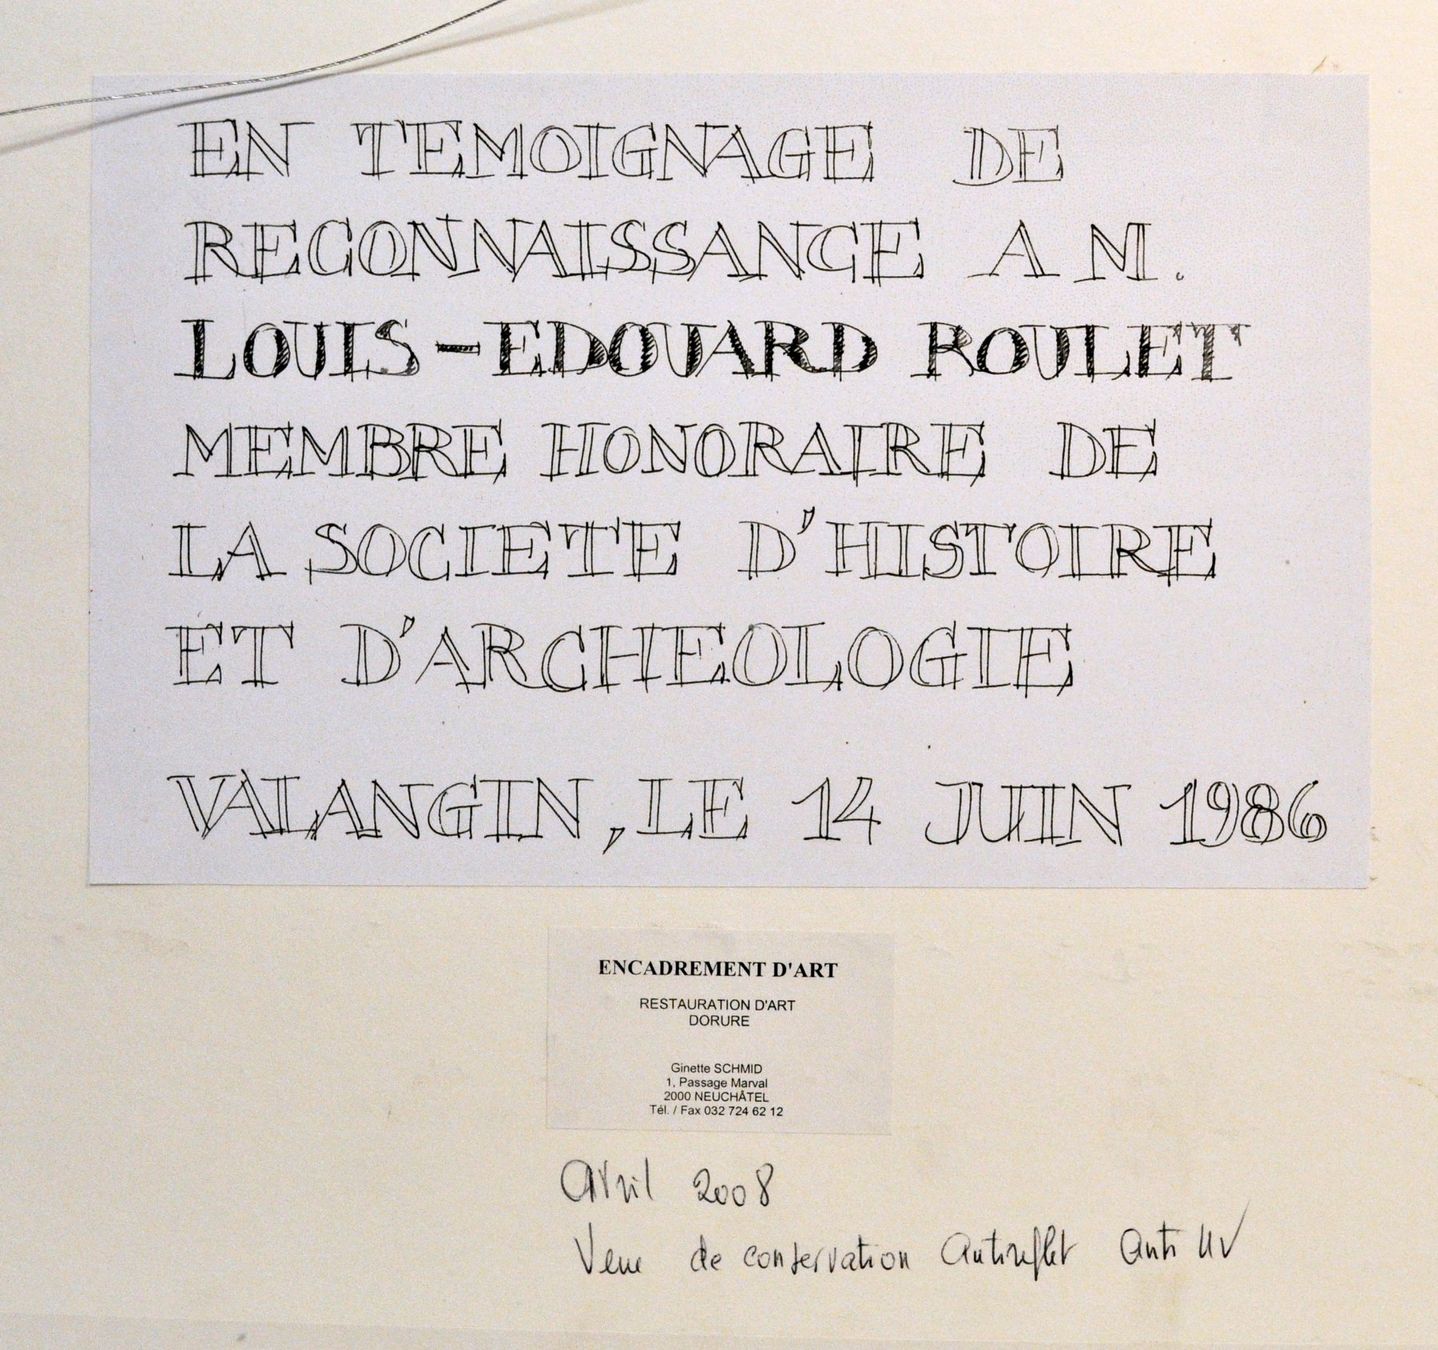 EN TEMOIGNAGE DE
RECONNAISSANCE A M.
LOUIS-EDOUARD ROULET
MEMBRE HONORAIRE DE
LA SOCIETE D'HISTOIRE
ET D'ARCHEOLOGIE
VALANGIN, LE 14 JUIN 1986
ENCADREMENT D'ART
RESTAURATION D'ART
DORURE
Ginette SCHMID
1, Passage Marval
2000 NEUCHÂTEL
Tél. / Fax 032 724 62 12
Avril 2008
Verre de conservation Antireflet Anti UV